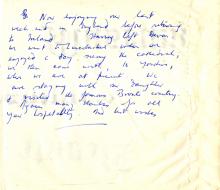 Now enjoying our last
week in England before returning
to Ireland. Having left Devon
we went to Winchester where we
enjoyed a day seeing the cathedral,
we then came north, to Yorkshire,
where we are at present. We
are staying with our daughter
& visited the famous Brontë country.
Again many thanks for all
your hospitality. And best wishes